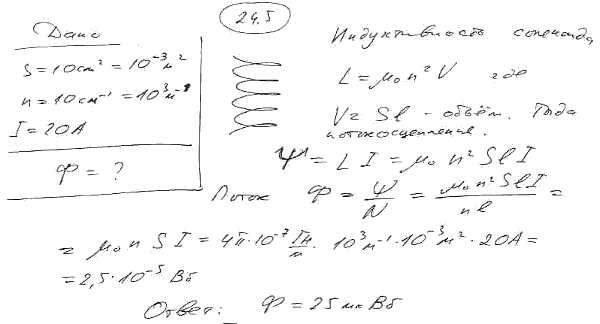 24.5
Дано
S = 10 см² = 10⁻³ м²
n = 10 см⁻¹ = 10³ м⁻¹
I = 20 А
Ф = ?
Индуктивность соленоида
L = μ₀ n² V где
V = Sl - объём. Тогда
потокосцепление.
Ψ = L I = μ₀ n² S l I
Поток Ф = Ψ/N = μ₀ n² S l I / n l =
= μ₀ n S I = 4π·10⁻⁷ Гн/м · 10³ м⁻¹ · 10⁻³ м² · 20А =
= 2,5·10⁻⁵ Вб
Ответ: Ф = 25 мкВб